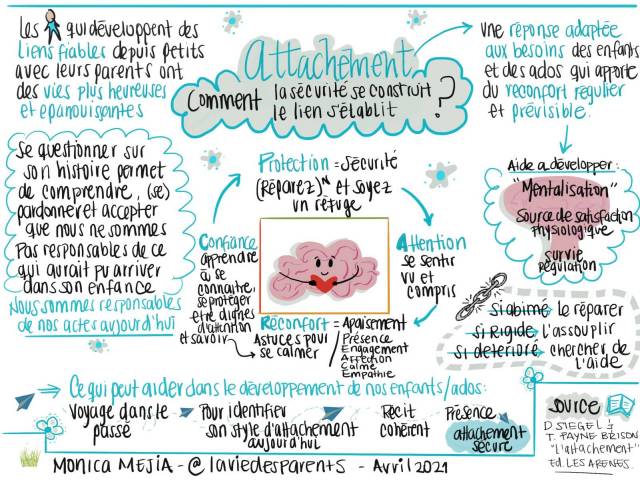 Les qui développent des
Liens fiables depuis petits
avec leurs parents ont
des vies plus heureuses
et épanouissantes
Attachement
Comment la sécurité se construit
le lien s'établit ?
une réponse adaptée
aux besoins des enfants
et des ados qui apporte
du réconfort régulier
et prévisible.
Se questionner sur
son histoire permet
de comprendre, (se)
pardonner et accepter
que nous ne sommes
Pas responsables de ce
qui aurait pu arriver
dans son enfance
Nous sommes responsables
de nos actes aujourd'hui
Protection = Sécurité
(Réparez)ᴺ et soyez
un refuge
Confiance
apprendre
à se
connaitre,
se protéger
être dignes
d'attention
et savoir
Attention
se sentir
vu et
compris
Réconfort = Apaisement
Astuces pour
se calmer
Présence
Engagement
Affection
Calme
Empathie
Aide à développer :
"Mentalisation"
Source de satisfaction
physiologique
survie
Régulation
Si abimé le réparer
si Rigide l'assouplir
Si détérioré chercher de
l'aide
Ce qui peut aider dans le développement de nos enfants/ados:
Voyage dans le
passé
Pour identifier
son style d'attachement
aujourd'hui
Récit
cohérent
Présence
attachement
sécure
Source
D. SIEGEL &
T. PAYNE BRISON
"L'attachement"
Ed. LES ARENES.
MONICA MEJIA - @laviedesparents - Avril 2021